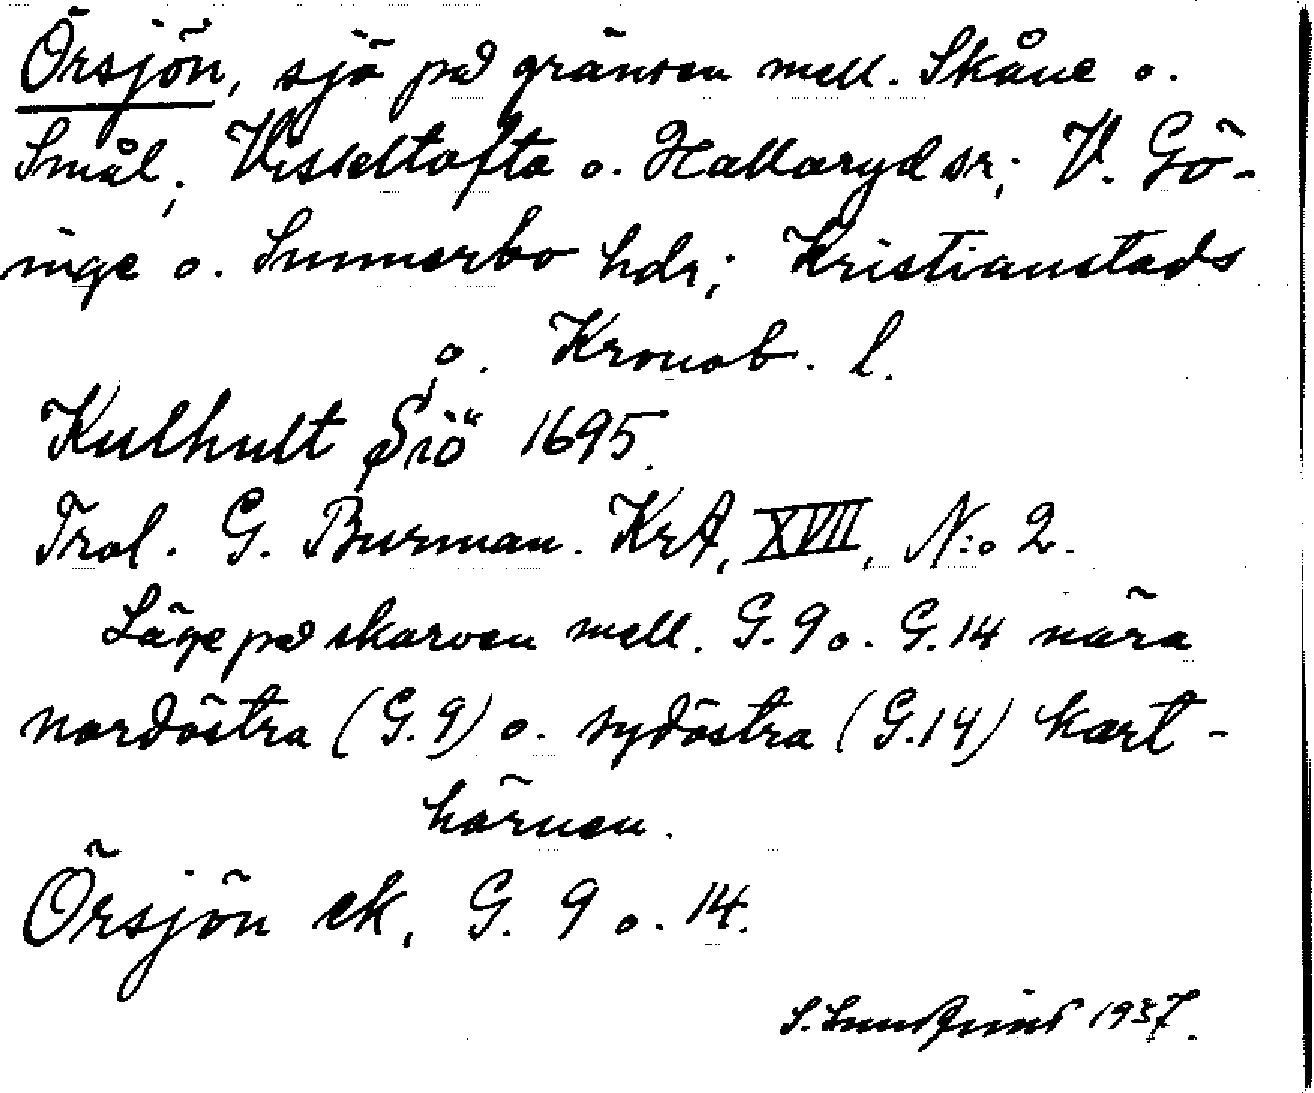 Örsjön, sjö på gränsen mell. Skåne o.
Smål; Visseltofta o. Hallaryd sr; V. Gö-
inge o. Sunnerbo hdr; Kristianstads
o. Kronob. l.
Kulhult Siö 1695.
Trol. G. Burman. KrA, XVII, N:o 2.
Läge på skarven mell. G. 9 o. G. 14 nära
nordöstra (G. 9) o. sydöstra (G. 14) kart-
hörnen.
Örsjön ek, G. 9 o. 14.
S. 1937.